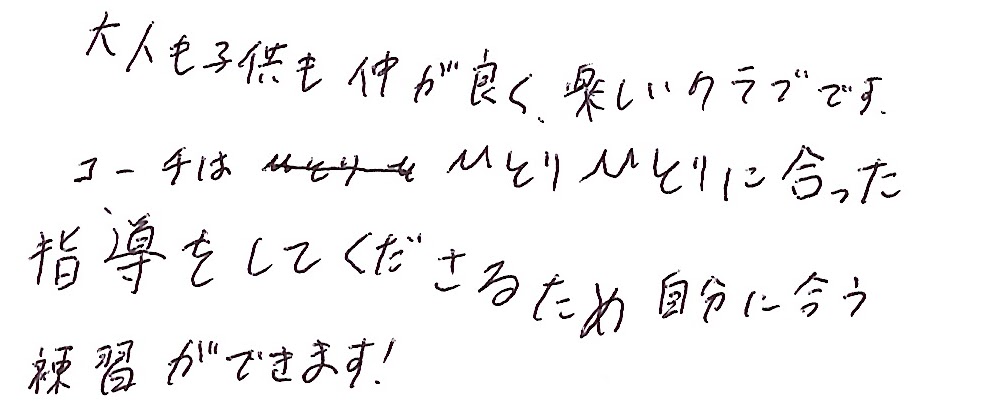 大人も子供も仲が良く、楽しいクラブです。
コーチは ひとりひとりに合った
指導をしてくださるため自分に合う
練習ができます!